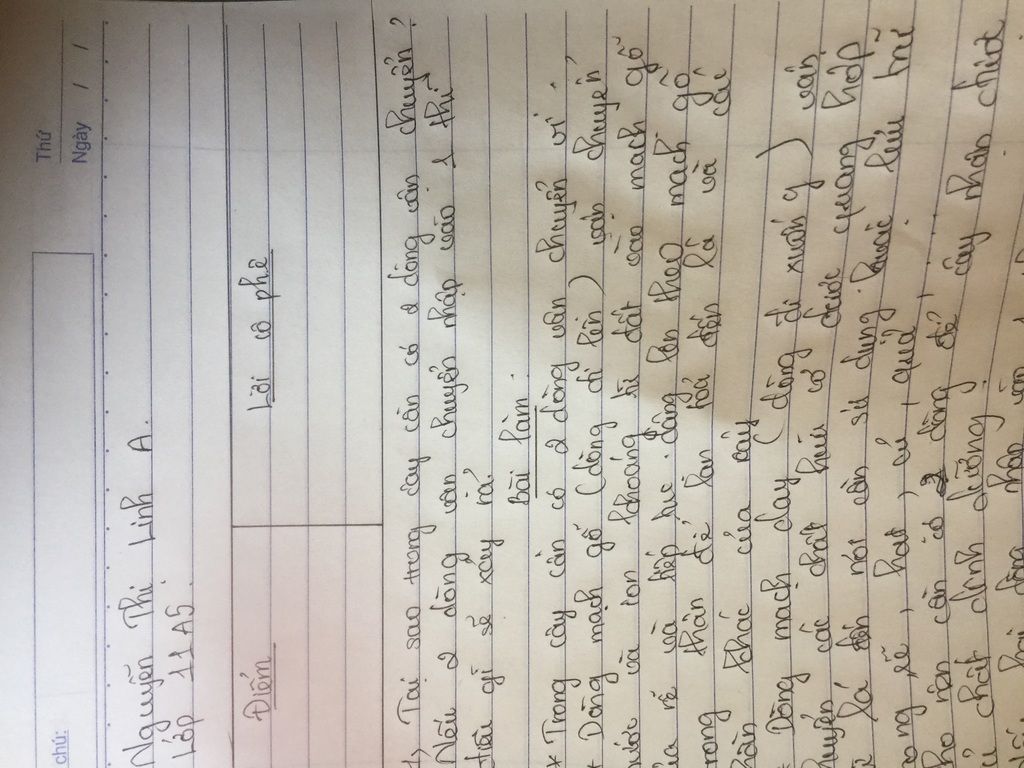 Thứ
Ngày / /
chú:
Nguyễn Thị Linh A.
Lớp 11A5.
Điểm
Lời cô phê
1, Tại sao trong cây cần có 2 dòng vân chuyển?
Nếu 2 dòng vân chuyển nhập vào 1 thì
điều gì sẽ xảy ra?
Bài làm.
* Trong cây cần có 2 dòng vân chuyển vì:
* Dòng mạch gỗ (dòng đi lên) vân chuyển
nước và ion khoáng từ đất vào mạch gỗ
của rễ và tiếp tục dâng lên theo mạch gỗ
trong thân để lan toả đến lá và các
phần khác của cây
* Dòng mạch rây (dòng đi xuống) vân
chuyển các chất hữu cơ được quang hợp
từ lá đến nơi cần sử dụng hoặc lưu trữ
trong rễ, hạt, củ, quả
cho nên cần có 2 dòng để cây phân chia
chất dinh dưỡng